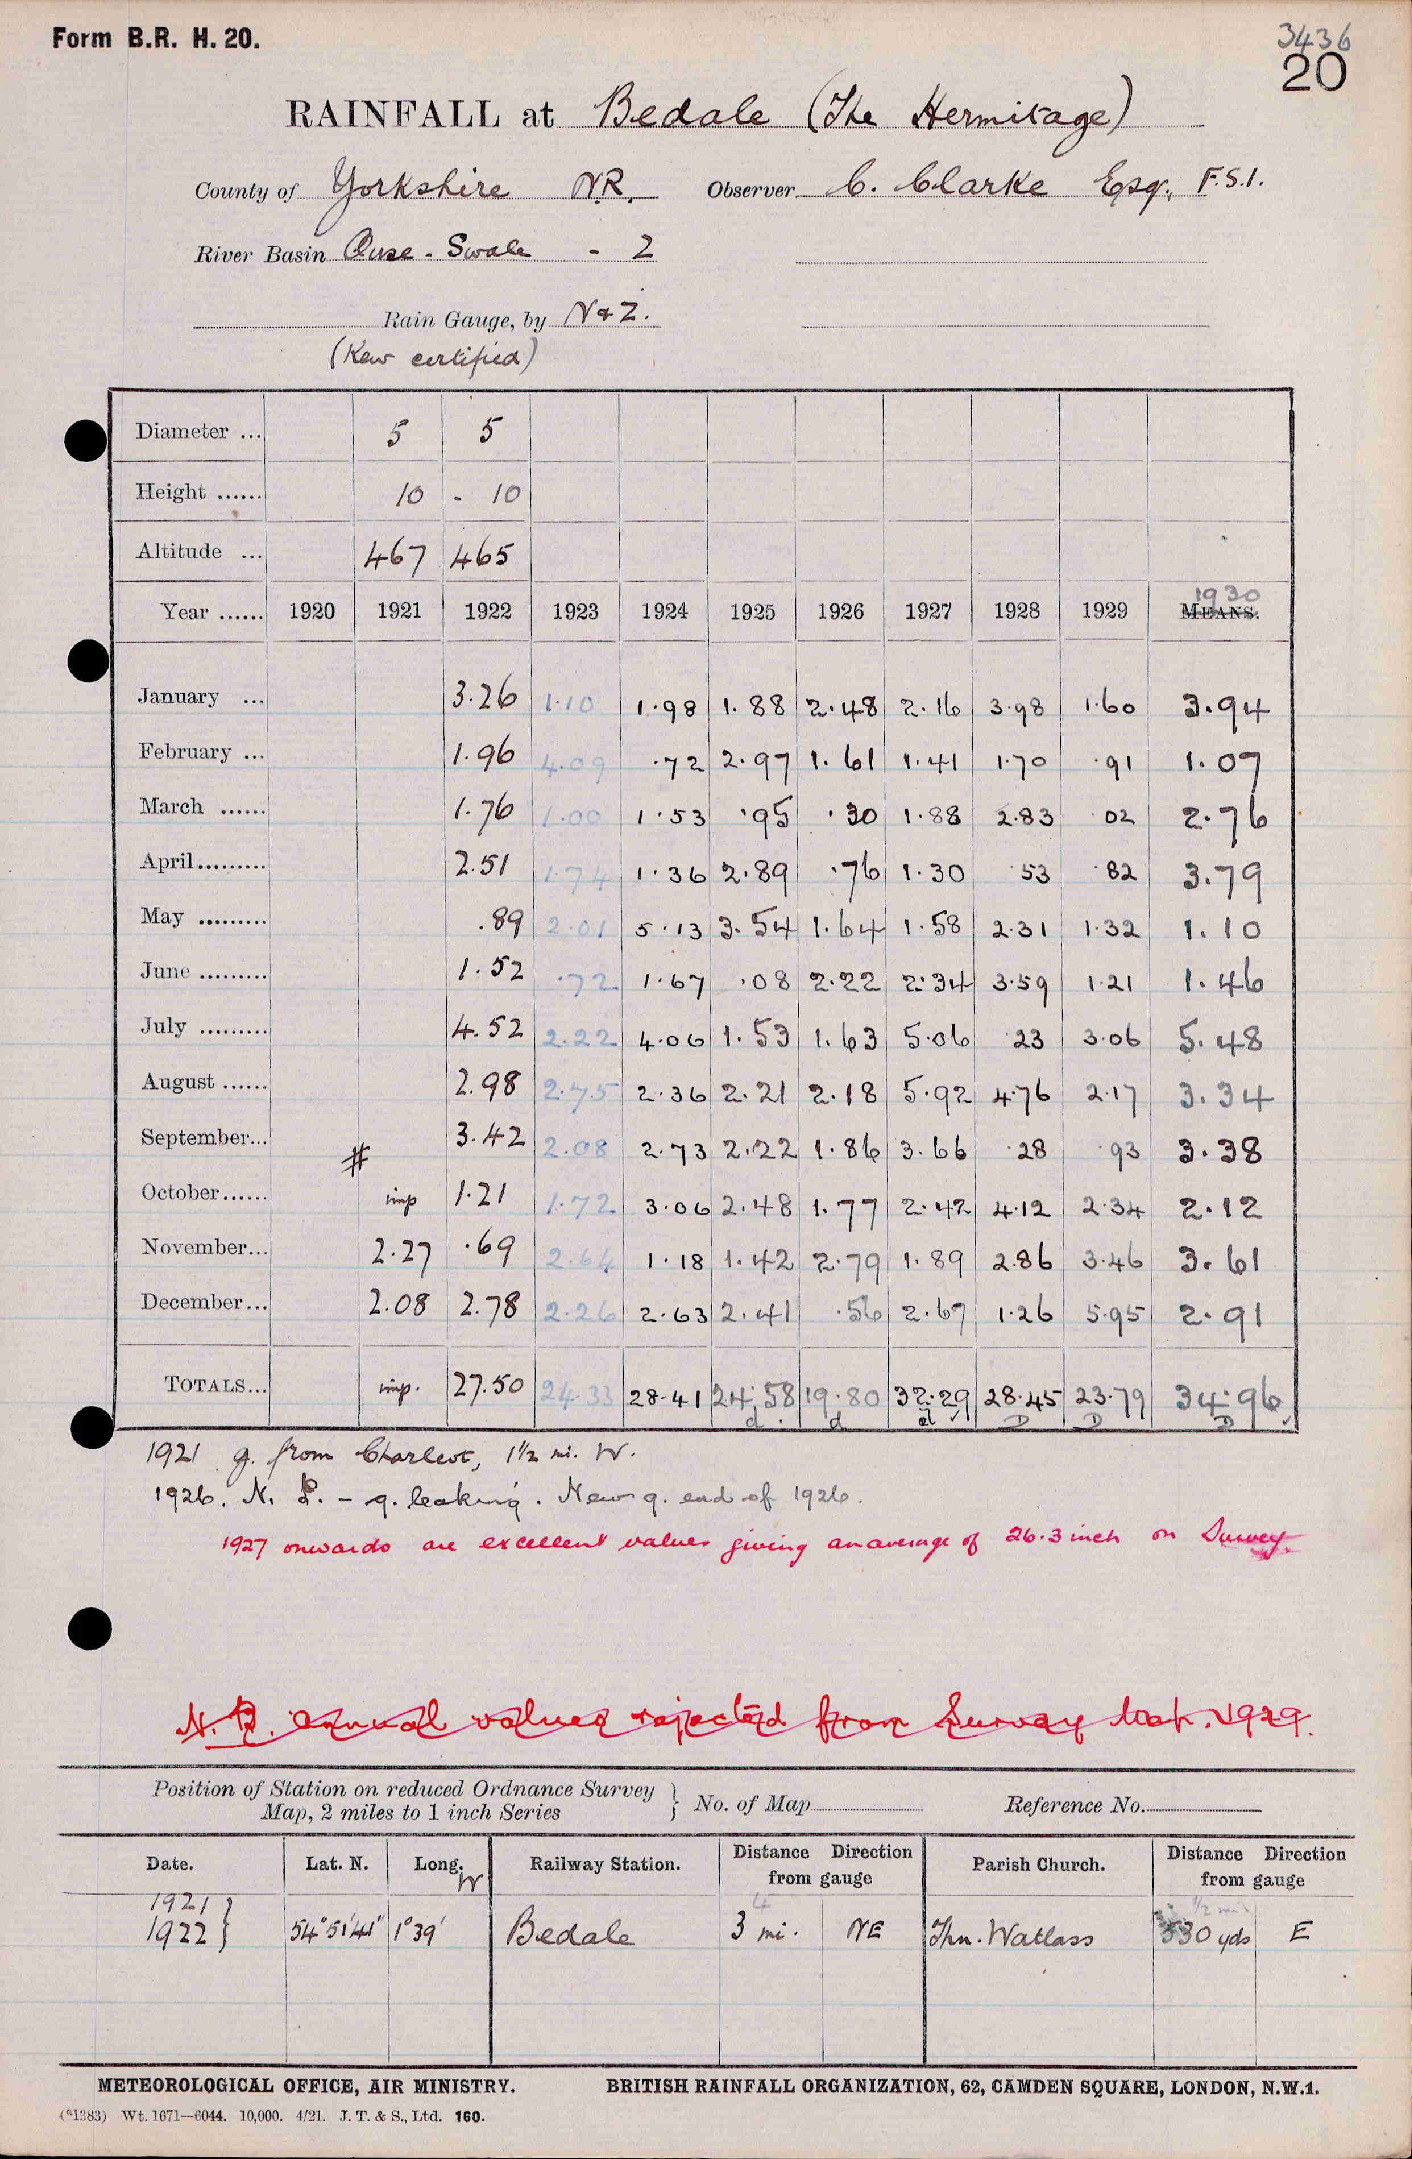 Form B.R. H. 20.
3436
20
RAINFALL at Bedale (The Hermitage)
County of Yorkshire N.R. Observer C. Clarke Esq., F.S.I.
River Basin Ouse - Swale - 2
Rain Gauge, by N & Z.
(Kew certified)
Diameter ... 5 5
Height ...... 10 - 10
Altitude ... 467 465
1930
Year ...... 1920 1921 1922 1923 1924 1925 1926 1927 1928 1929 MEANS.
January ... 3.26 1.10 1.98 1.88 2.48 2.16 3.98 1.60 3.94
February ... 1.96 4.09 .72 2.97 1.61 1.41 1.70 .91 1.07
March ...... 1.76 1.00 1.53 .95 .30 1.88 2.83 02 2.76
April......... 2.51 1.74 1.36 2.89 .76 1.30 .53 .82 3.79
May ......... .89 2.01 5.13 3.54 1.64 1.58 2.31 1.32 1.10
June ......... 1.52 .72 1.67 .08 2.22 2.34 3.59 1.21 1.46
July ......... 4.52 2.22 4.06 1.53 1.63 5.06 .23 3.06 5.48
August ...... 2.98 2.75 2.36 2.21 2.18 5.92 4.76 2.17 3.34
September... # 3.42 2.08 2.73 2.22 1.86 3.66 .28 .93 3.38
October...... imp 1.21 1.72 3.06 2.48 1.77 2.42 4.12 2.34 2.12
November... 2.27 .69 2.64 1.18 1.42 2.79 1.89 2.86 3.46 3.61
December... 2.08 2.78 2.26 2.63 2.41 .56 2.67 1.26 5.95 2.91
TOTALS... imp. 27.50 24.33 28.41 24.58 19.80 32.29 28.45 23.79 34.96
d d d D D D
1921 g. from Charlcot, 1½ mi. W.
1926. N. B. - g. leaking. New g. end of 1926.
1927 onwards are excellent values giving an average of 26.3 inch on Survey.
N.B. annual values rejected from Survey Mar. 1929.
Position of Station on reduced Ordnance Survey
Map, 2 miles to 1 inch Series } No. of Map Reference No.
Date. Lat. N. Long. W Railway Station. Distance Direction from gauge Parish Church. Distance Direction from gauge
1921 }
1922 } 54°51'41" 1°39' Bedale 3 mi. NE Thn. Watlass 530 yds E
4
½ mi
METEOROLOGICAL OFFICE, AIR MINISTRY. BRITISH RAINFALL ORGANIZATION, 62, CAMDEN SQUARE, LONDON, N.W.1.
(*1383) Wt. 1671—6044. 10,000. 4/21. J. T. & S., Ltd. 160.